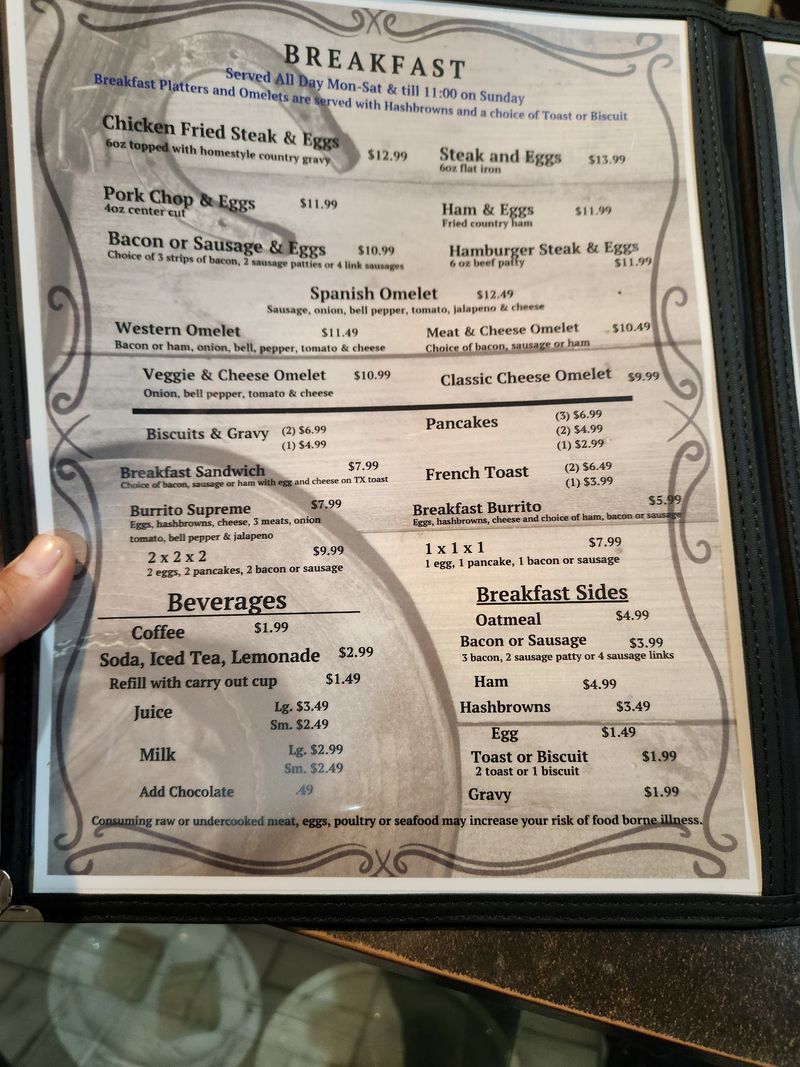 BREAKFAST
Served All Day Mon-Sat & till 11:00 on Sunday
Breakfast Platters and Omelets are served with Hashbrowns and a choice of Toast or Biscuit
Chicken Fried Steak & Eggs
6oz topped with homestyle country gravy $12.99
Steak and Eggs $13.99
6oz flat iron
Pork Chop & Eggs $11.99
4oz center cut
Ham & Eggs $11.99
Fried country ham
Bacon or Sausage & Eggs $10.99
Choice of 3 strips of bacon, 2 sausage patties or 4 link sausages
Hamburger Steak & Eggs
6 oz beef patty $11.99
Spanish Omelet $12.49
Sausage, onion, bell pepper, tomato, jalapeno & cheese
Western Omelet $11.49
Bacon or ham, onion, bell, pepper, tomato & cheese
Meat & Cheese Omelet $10.49
Choice of bacon, sausage or ham
Veggie & Cheese Omelet $10.99
Onion, bell pepper, tomato & cheese
Classic Cheese Omelet $9.99
Biscuits & Gravy (2) $6.99
(1) $4.99
Pancakes (3) $6.99
(2) $4.99
(1) $2.99
Breakfast Sandwich $7.99
Choice of bacon, sausage or ham with egg and cheese on TX toast
French Toast (2) $6.49
(1) $3.99
Burrito Supreme $7.99
Eggs, hashbrowns, cheese, 3 meats, onion
tomato, bell pepper & jalapeno
Breakfast Burrito $5.99
Eggs, hashbrowns, cheese and choice of ham, bacon or sausage
2 x 2 x 2 $9.99
2 eggs, 2 pancakes, 2 bacon or sausage
1 x 1 x 1 $7.99
1 egg, 1 pancake, 1 bacon or sausage
Beverages
Coffee $1.99
Soda, Iced Tea, Lemonade $2.99
Refill with carry out cup $1.49
Juice Lg. $3.49
Sm. $2.49
Milk Lg. $2.99
Sm. $2.49
Add Chocolate .49
Breakfast Sides
Oatmeal $4.99
Bacon or Sausage $3.99
3 bacon, 2 sausage patty or 4 sausage links
Ham $4.99
Hashbrowns $3.49
Egg $1.49
Toast or Biscuit $1.99
2 toast or 1 biscuit
Gravy $1.99
Consuming raw or undercooked meat, eggs, poultry or seafood may increase your risk of food borne illness.